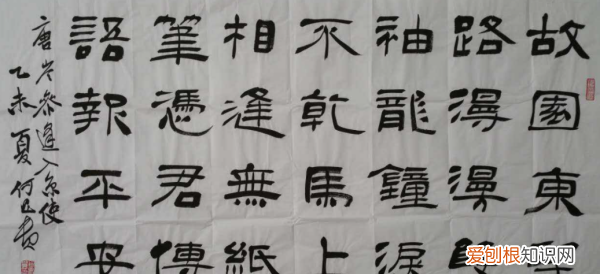 故園東
路漫漫
袖龍鐘淚
不乾馬上
相逢無紙
筆憑君傳
語報平安
唐岑參逢入京使
乙未夏何
爱刨根知识网